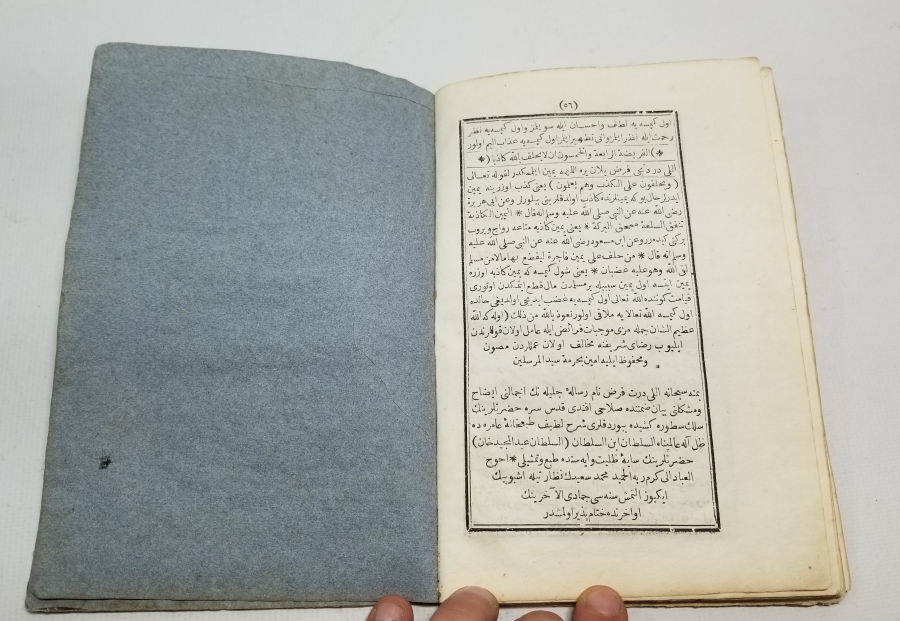 (٥٦)
اول كيمسه يه لطف واحسان ايله سويلمز واول كيمسه يه نظر
رحمت ايله نظر ايلمز وانى تطهير ايلمز اول كيمسه يه عذاب اليم اولور
*) الفريضة الرابعة والخمسون ان لا يحلف بالله كاذبا (*
اللى دردنجى فرض يلان يره اللهه يمين ايتمامكدر لقوله تعالى
(ويحلفون على الكذب وهم يعلمون) يعنى كذب اوزرينه يمين
ايدرلر حال بو كه يمينلرنده كاذب اولدقلرينى بيلورلر وعن ابى هريرة
رضى الله عنه عن النبى صلى الله عليه وسلم انه قال * اليمين الكاذبة
تنفق السلعة ممحق البركة * يعنى يمين كاذبه متاعه رواج ويروب
بركتى كيدرر وعن ابن مسعود رضى الله عنه عن النبى صلى الله عليه
وسلم انه قال * من حلف على يمين فاجرة ليقطع بها مالا من مسلم
لقى الله وهو عليه غضبان * يعنى شول كيمسه كه يمين كاذبه اوزره
يمين ايتسه اول يمين سببيله بر مسلمدن مال قطع ايتمكدن اوتورى
قيامت كوننده الله تعالى اول كيمسه يه غضب ايديجى اولديغى حالده
اول كيمسه الله تعالايه ملاقى اولور نعوذ بالله من ذلك (اوله كه الله
عظيم الشان جمله مزى موجبات فرائض ايله عامل اولان قوللرندن
ايليوب رضاى شريفنه مخالف اولان عمللردن مصون
ومحفوظ ايليه امين بحرمة سيد المرسلين
بمنه سبحانه اللى درت فرض نام رسالهٔ جليله نك اجمالنى ايضاح
ومشكلنى بيان ضمننده صلاحى افندى قدس سره حضرتلرينك
سلك سطوره كشيده بيوردقلرى شرح لطيف طبعخانهٔ عامره ده
ظل اله عالمپناه السلطان ابن السلطان (السلطان عبد المجيد خان)
حضرتلرينك سايهٔ ظليت وايه سنده طبع وتمثيلى * احوج
العباد الى كرم ربه المجيد محمد سعيدك نظارتيله اشبو بيك
ايكيوز التمش سنه سى جمادى الآخرينك
اواخرنده ختام پذير اولمشدر